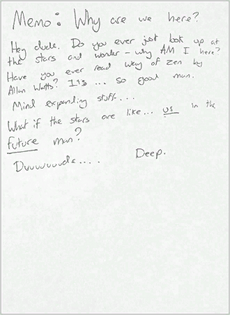 Memo: Why are we here?
Hey dude. Do you ever just look up at
the stars and wonder - why AM I here?
Have you ever read Way of Zen by
Allan Watts? It's ... so good man.
Mind expanding stuff...
What if the stars are like... us in the
future man?
Duuwuuude.... Deep.